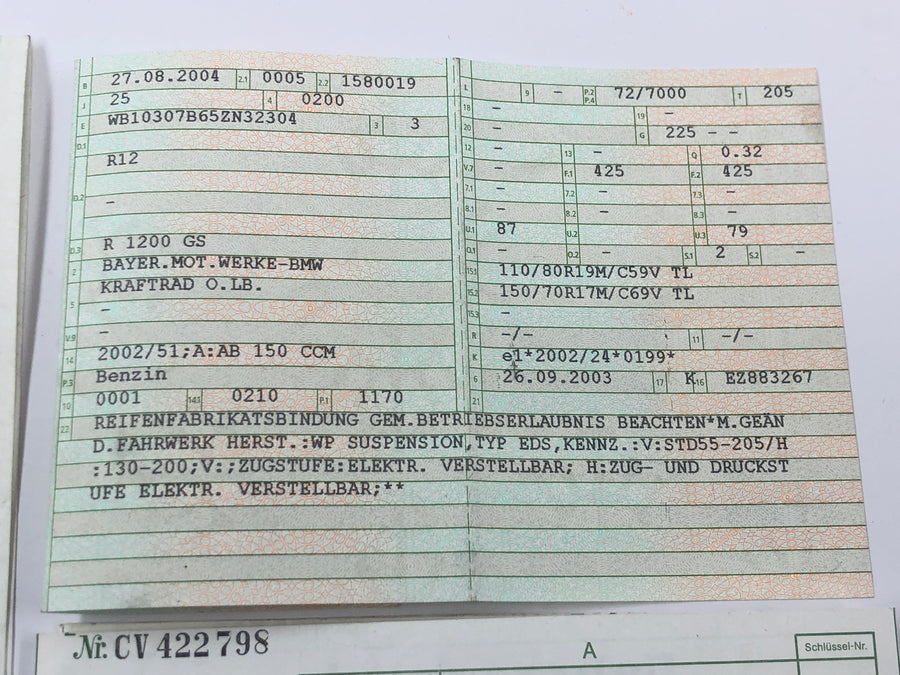 B 27.08.2004 2.1 0005 2.2 1580019
J 25 4 0200
E WB10307B65ZN32304 3 3
D.1
R12
D.2 -
D.3 R 1200 GS
2 BAYER.MOT.WERKE-BMW
5 KRAFTRAD O.LB.
-
V.9 -
14 2002/51;A:AB 150 CCM
P.3 Benzin
10 0001 14.1 0210 P.1 1170
L 9 - P.2 P.4 72/7000 T 205
18 - 19 -
20 - G 225 - -
12 - 13 - Q 0.32
V.7 - F.1 425 F.2 425
7.1 - 7.2 - 7.3 -
8.1 - 8.2 - 8.3 -
U.1 87 U.2 U.3 79
O.1 - O.2 - S.1 2 S.2 -
15.1 110/80R19M/C59V TL
15.2 150/70R17M/C69V TL
15.3 -
R -/- 11 -/-
K e1*2002/24*0199*
6 26.09.2003 17 K 16 EZ883267
21
22 REIFENFABRIKATSBINDUNG GEM.BETRIEBSERLAUBNIS BEACHTEN*M.GEÄN
D.FAHRWERK HERST.:WP SUSPENSION,TYP EDS,KENNZ.:V:STD55-205/H
:130-200;V:;ZUGSTUFE:ELEKTR. VERSTELLBAR; H:ZUG- UND DRUCKST
UFE ELEKTR. VERSTELLBAR;**
Nr. CV 422798
A
Schlüssel-Nr.